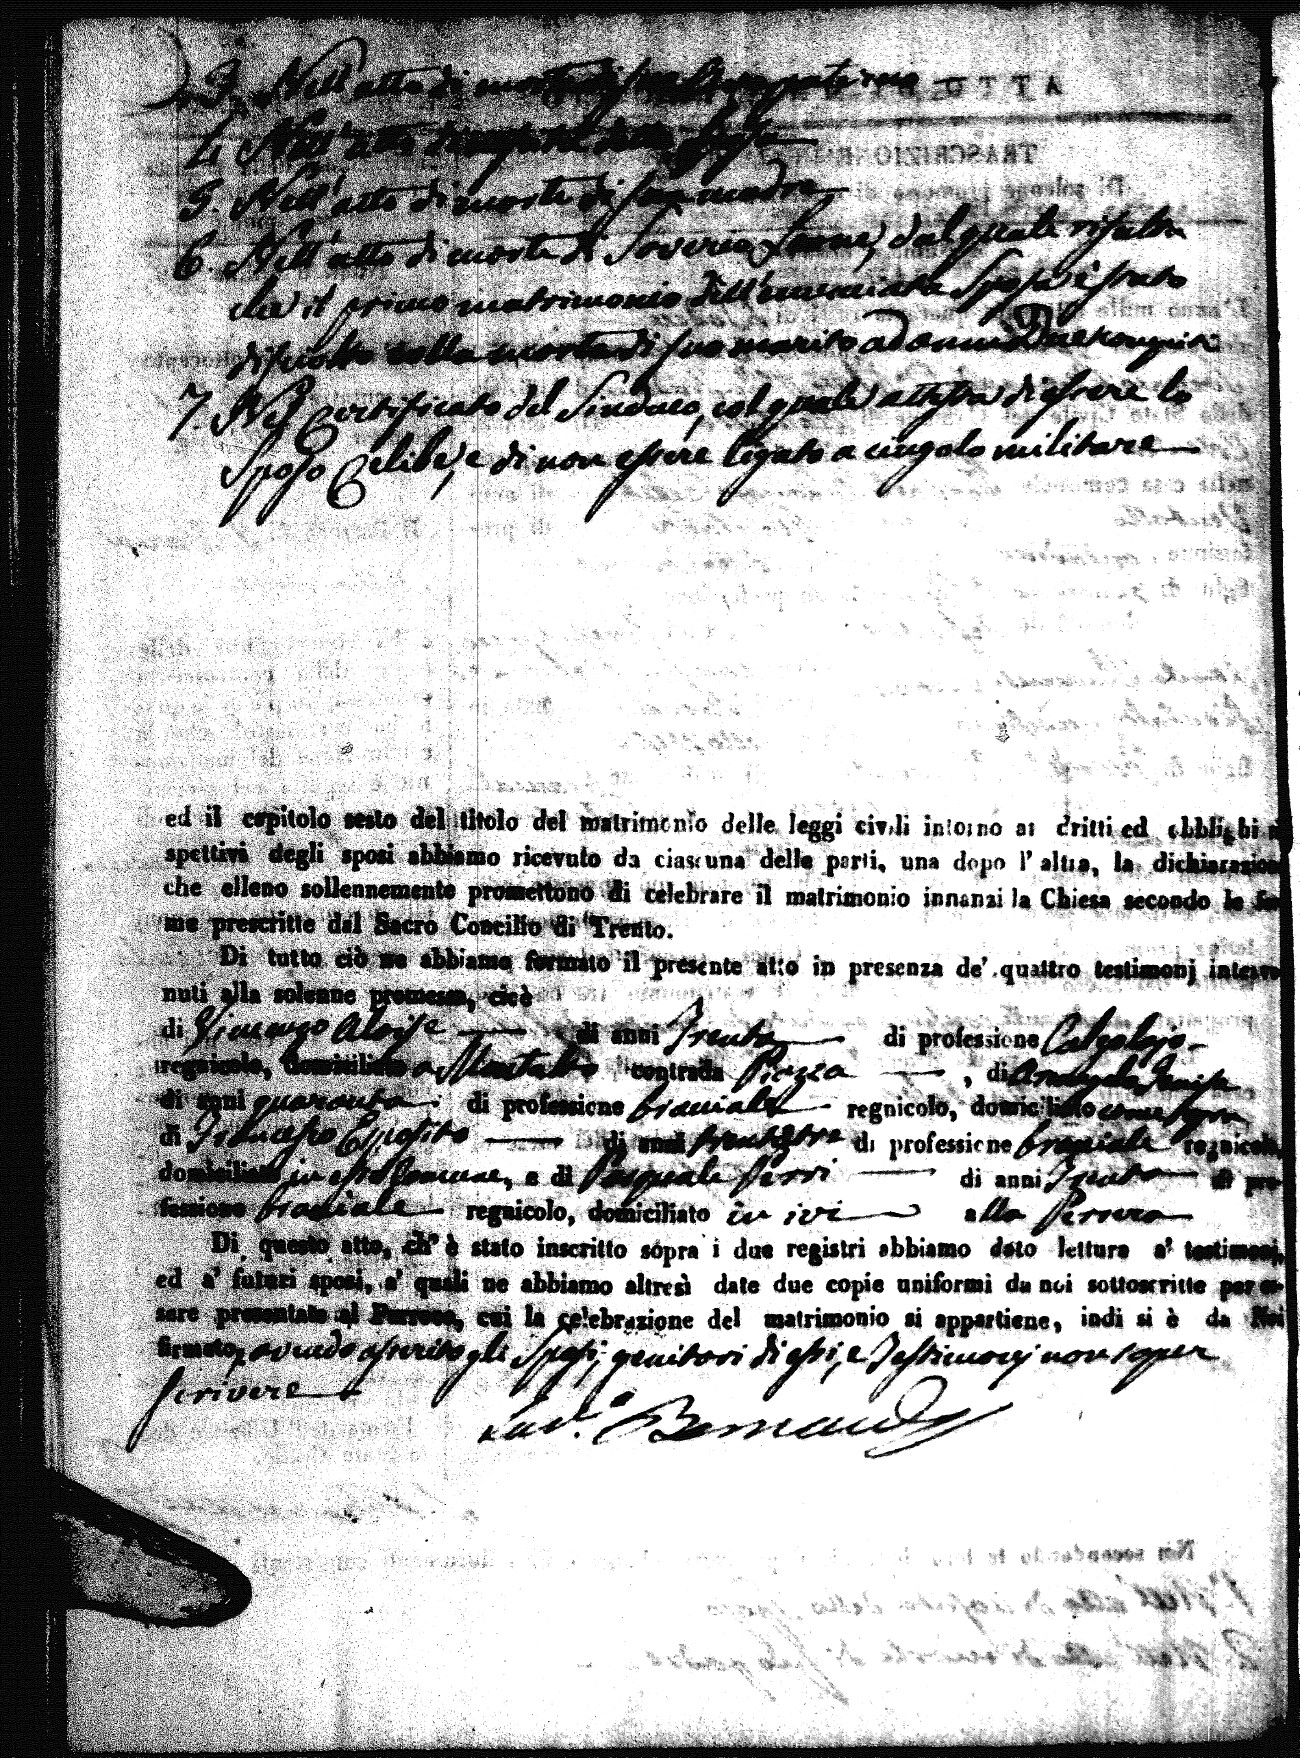 3. Nell'atto di morte di suo avo paterno
4. Nell'atto di nascita della Sposa
5. Nell'atto di morte di sua madre
6. Nell'atto di morte di Saverio Leone, dal quale risulta
che il primo matrimonio dell'enunciata Sposa è stato
disciolto colla morte di suo marito ad anni
7. Nel Certificato del Sindaco, col quale attesta di essere lo
Sposo Celibe, e di non essere legato a cingolo militare
ed il capitolo sesto del titolo del matrimonio delle leggi civili intorno ai dritti ed obblighi ri
spettivi degli sposi abbiamo ricevuto da ciascuna delle parti, una dopo l'altra, la dichiarazione
che elleno sollennemente promettono di celebrare il matrimonio innanzi la Chiesa secondo le for
me prescritte dal Sacro Concilio di Trento.
Di tutto ciò ne abbiamo formato il presente atto in presenza de' quattro testimonj interve
nuti alla solenne promessa, cioè
di Vincenzo Aloise di anni Trenta di professione Calzolajo
regnicolo, domiciliato a Montalto contrada Piazza, di
di anni quaranta di professione braciale regnicolo, domiciliato come sopra
di Francesco Esposito di anni trentatre di professione braciale regnicolo,
domiciliato in esso Comune, e di Pasquale Perri di anni Trenta di pro-
fessione braciale regnicolo, domiciliato in ivi alla
Di questo atto, ch'è stato inscritto sopra i due registri abbiamo dato lettura a' testimonj,
ed a' futuri sposi, a' quali ne abbiamo altresì date due copie uniformi da noi sottoscritte per es-
sere presentate al Parroco, cui la celebrazione del matrimonio si appartiene, indi si è da Noi
firmato, avendo asserito gli Sposi, genitori di essi, e Testimonj non saper
scrivere